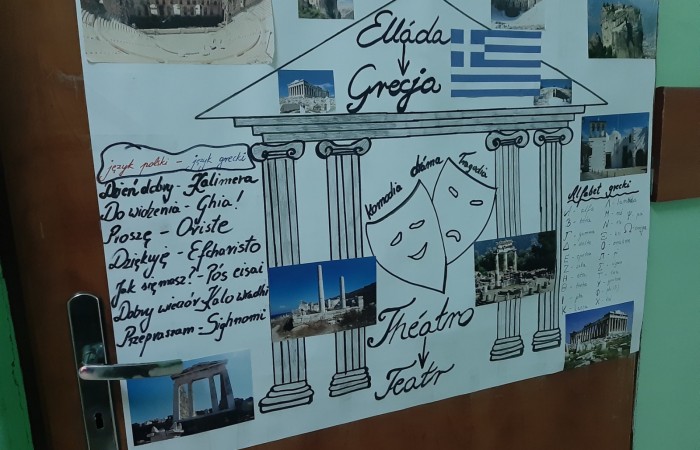 Elláda
Grecja
język polski - język grecki
Dzień dobry - Kalimera
Do widzenia - Ghia!
Proszę - Oriste
Dziękuję - Efcharisto
Jak się masz? - Pós eisai
Dobry wieczór - Kalo wradhi
Przepraszam - Sighnomi
Komodia dráma Tragadia
Théatro
Teatr
Alfabet grecki